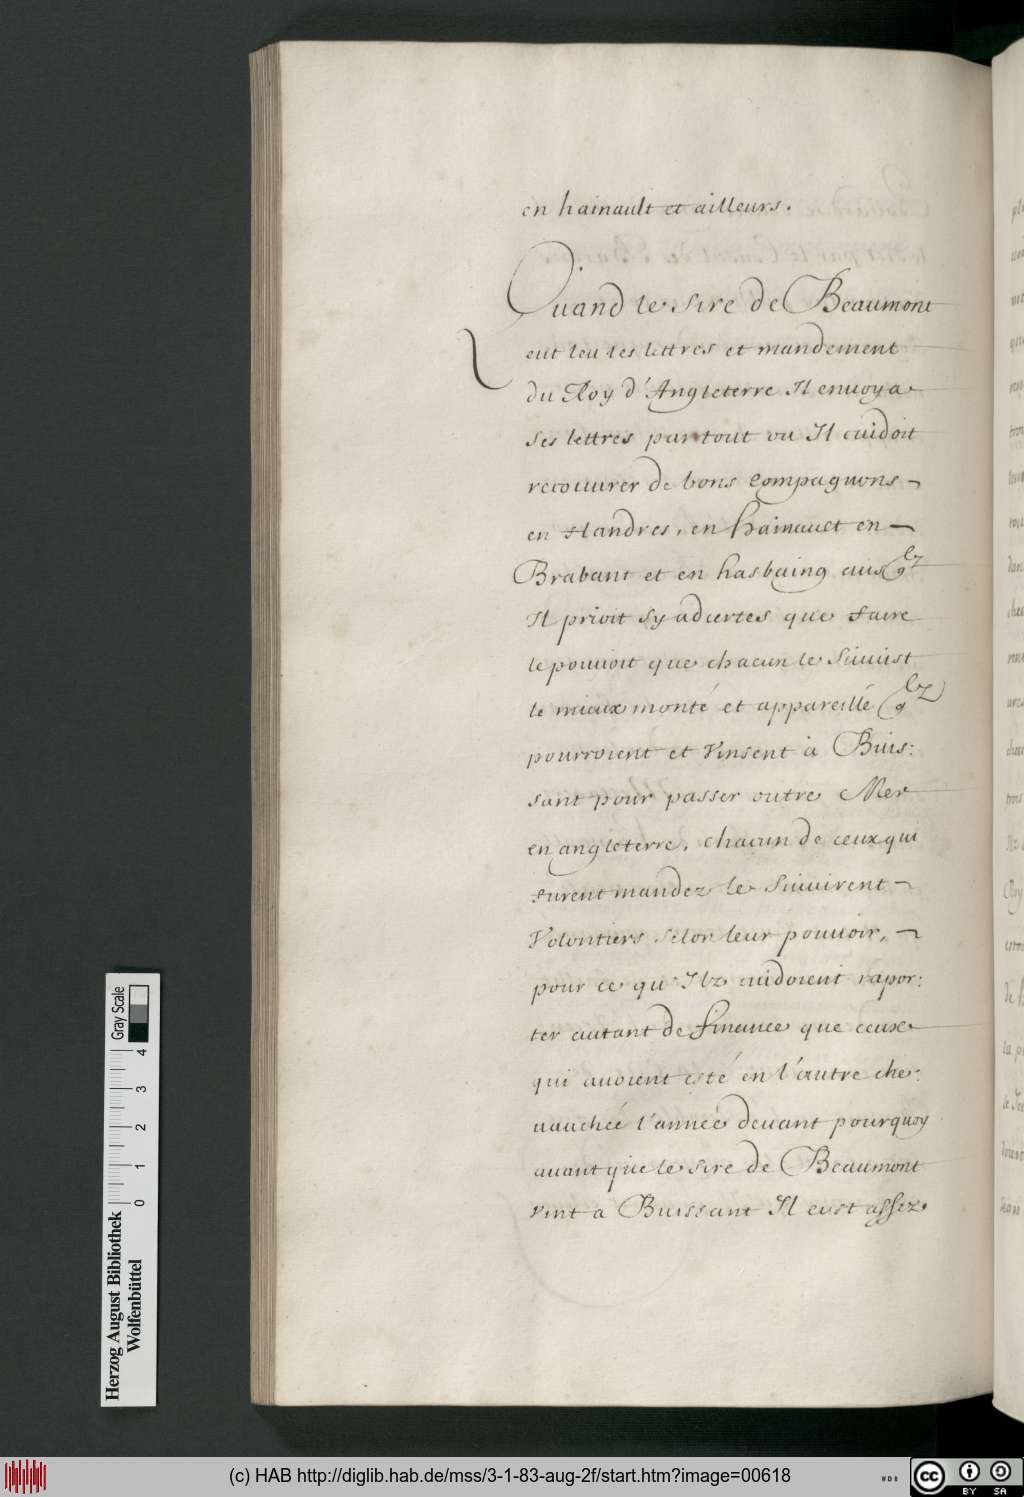 en hainault et ailleurs.
Quand le sire de Beaumont
eut leu les lettres et mandement
du Roy d'Angleterre Il enuoya
ses lettres par tout ou Il cuidoit
recouurer de bons Compagnons
en flandres, en hainauet en
Brabant et en hasbaing
Il prioit sy adcertes que faire
le pouuoit que chacun le Suiuist
le mieux monté et appareillé
pourroient et vinsent à Buis:
sant pour passer outre Mer
en angleterre, chacun de ceux qui
furent mandez le Suiuirent
Volontiers selon leur pouuoir,
pour ce qu'Ilz cuidoient rapor:
ter autant de finance que ceux
qui auoient esté en l'autre che:
uauchée l'année deuant pourquoy
auant que le sire de Beaumont
vint a Buissant Il eust assez
Herzog August Bibliothek
Wolfenbüttel
0 1 2 3 4
Gray Scale
(c) HAB http://diglib.hab.de/mss/3-1-83-aug-2f/start.htm?image=00618
WDB
cc BY SA